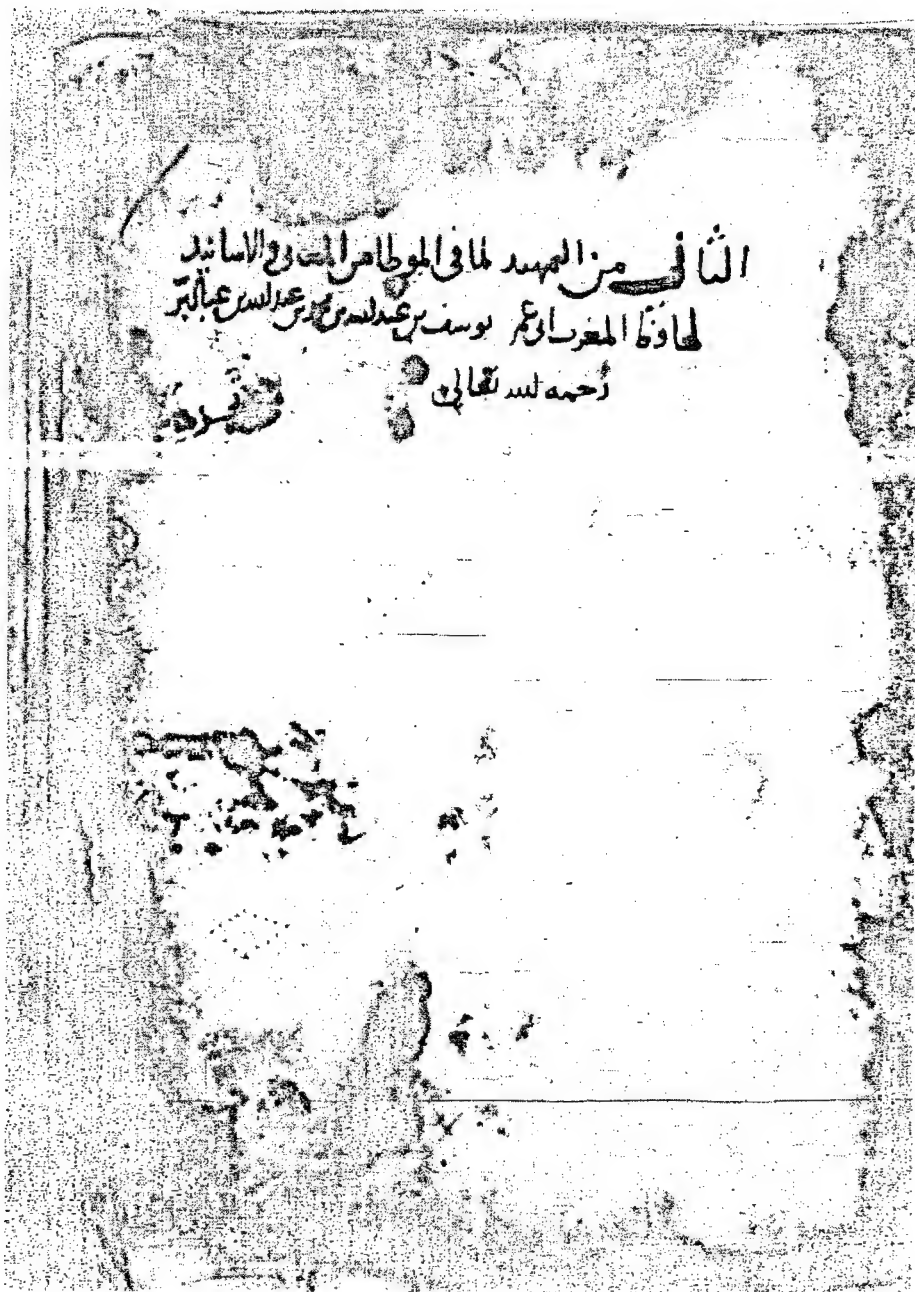 الثاني من التمهيد لما في الموطا من المعاني والاسانيد
لحافظ المغرب ابي عمر يوسف بن عبد الله بن محمد بن عبد الله بن عبد البر
رحمه الله تعالى